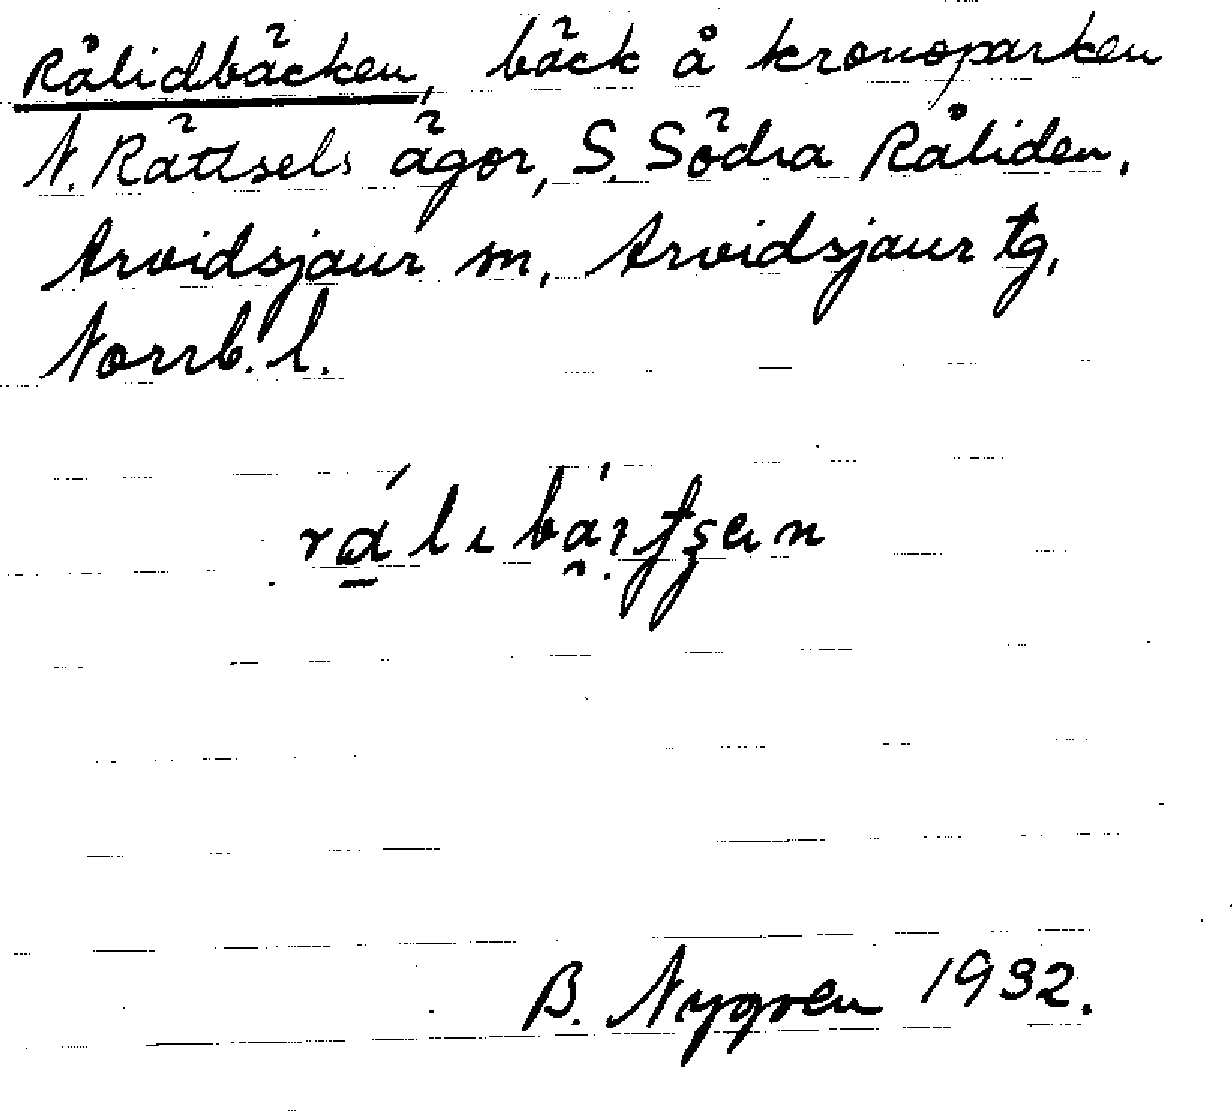 Rålidbäcken, bäck å kronoparken
N. Rättsels ägor, S. Södra Råliden,
Arvidsjaur sn, Arvidsjaur tg,
Norrb. l.
B. Nygren 1932.